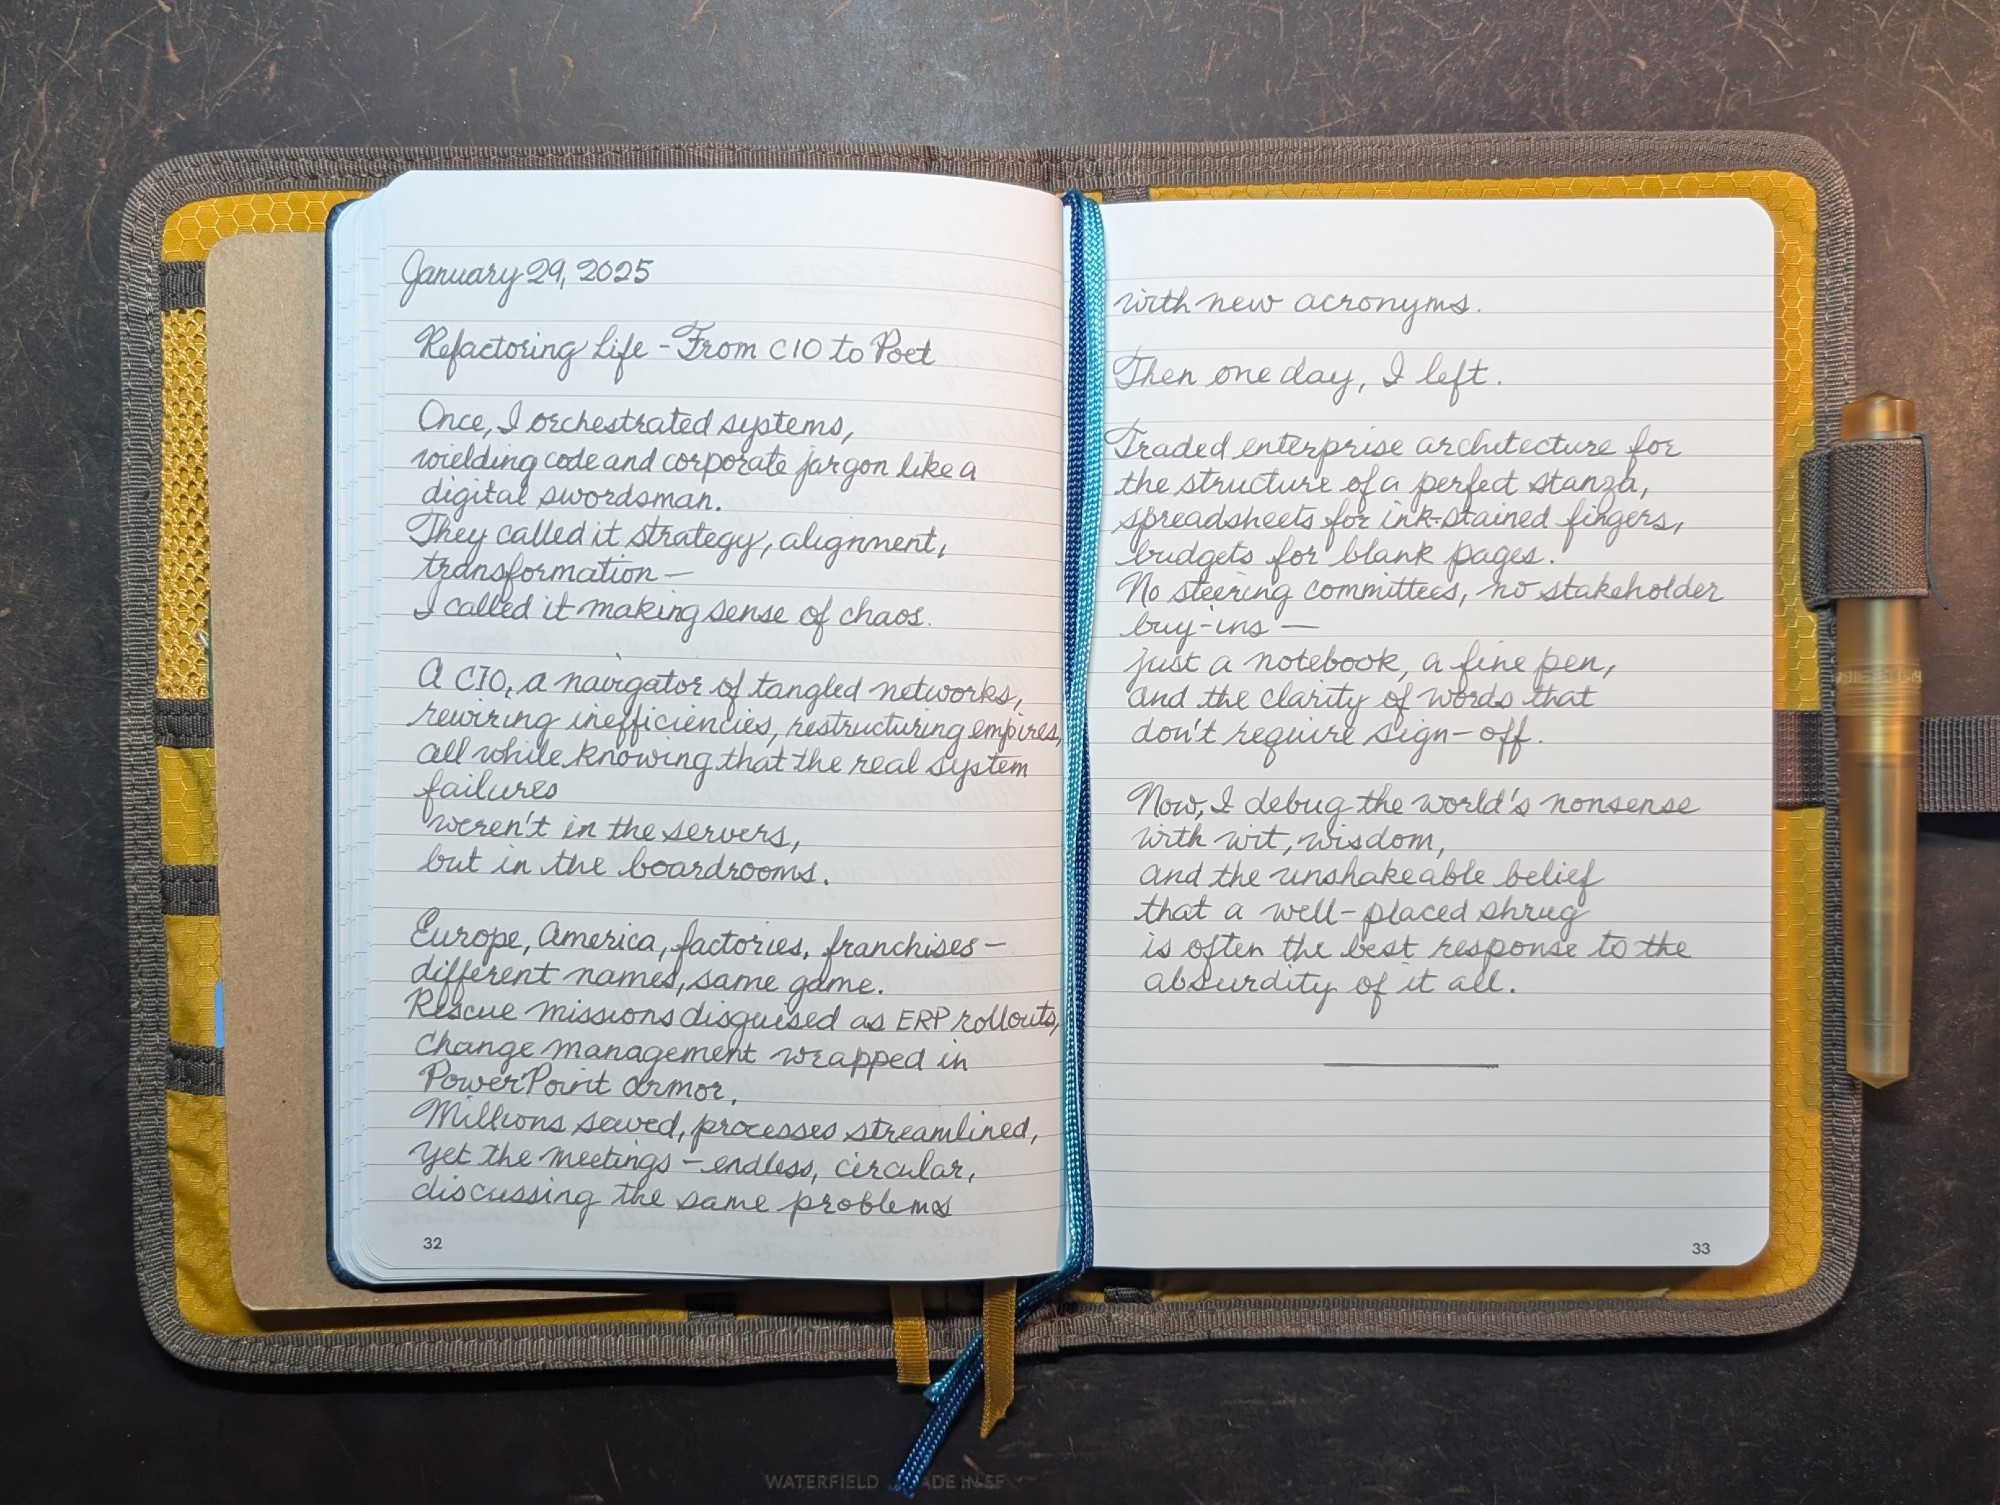 January 29, 2025
Refactoring Life - From CIO to Poet
Once, I orchestrated systems,
wielding code and corporate jargon like a
digital swordsman.
They called it strategy, alignment,
transformation —
I called it making sense of chaos.
A CIO, a navigator of tangled networks,
rewiring inefficiencies, restructuring empires,
all while knowing that the real system
failures
weren't in the servers,
but in the boardrooms.
Europe, America, factories, franchises —
different names, same game.
Rescue missions disguised as ERP rollouts,
change management wrapped in
PowerPoint armor.
Millions saved, processes streamlined,
yet the meetings — endless, circular,
discussing the same problems
32
with new acronyms.
Then one day, I left.
Traded enterprise architecture for
the structure of a perfect stanza,
spreadsheets for ink-stained fingers,
budgets for blank pages.
No steering committees, no stakeholder
buy-ins —
just a notebook, a fine pen,
and the clarity of words that
don't require sign-off.
Now, I debug the world's nonsense
with wit, wisdom,
and the unshakeable belief
that a well-placed shrug
is often the best response to the
absurdity of it all.
33
WATERFIELD ADE IN SF